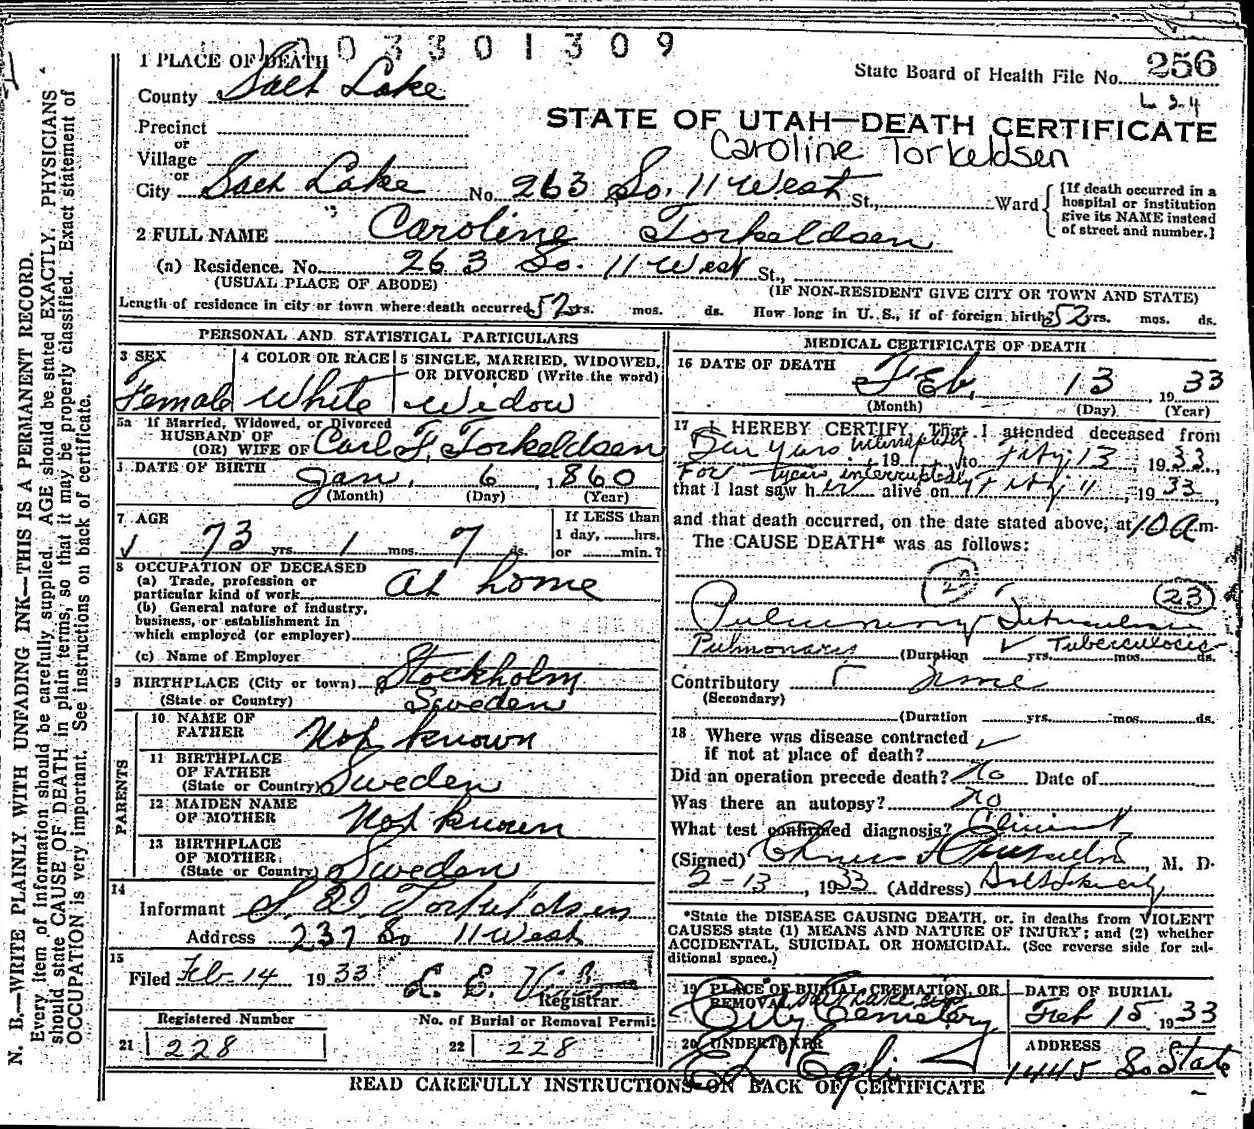 1 0 0 3 3 0 1 3 0 9
1 PLACE OF DEATH
State Board of Health File No. 256
County Salt Lake
STATE OF UTAH—DEATH CERTIFICATE
Precinct
or
Village
Caroline Torkeldsen
or
City Salt Lake No. 263 So. 11 West St., Ward
{If death occurred in a hospital or institution give its NAME instead of street and number.}
2 FULL NAME Caroline Torkeldsen
(a) Residence. No. 263 So. 11 West St.,
(USUAL PLACE OF ABODE) (IF NON-RESIDENT GIVE CITY OR TOWN AND STATE)
Length of residence in city or town where death occurred 52 yrs. mos. ds. How long in U. S., if of foreign birth? 52 yrs. mos. ds.
PERSONAL AND STATISTICAL PARTICULARS
3 SEX
Female
4 COLOR OR RACE
White
5 SINGLE, MARRIED, WIDOWED, OR DIVORCED (Write the word)
Widow
5a If Married, Widowed, or Divorced
HUSBAND OF
(OR) WIFE OF Carl F. Torkeldsen
DATE OF BIRTH
Jan. 6 1860
(Month) (Day) (Year)
7 AGE
73 yrs. 1 mos. 7 ds.
If LESS than
1 day, hrs.
or min.?
8 OCCUPATION OF DECEASED
(a) Trade, profession or
particular kind of work At home
(b) General nature of industry,
business, or establishment in
which employed (or employer)
(c) Name of Employer
9 BIRTHPLACE (City or town) Stockholm
(State or Country) Sweden
PARENTS
10 NAME OF
FATHER Not known
11 BIRTHPLACE
OF FATHER
(State or Country) Sweden
12 MAIDEN NAME
OF MOTHER Not known
13 BIRTHPLACE
OF MOTHER
(State or Country) Sweden
14
Informant Torkeldsen
Address 237 So 11 West
15
Filed Feb-14 1933 L. E.
Registrar.
Registered Number No. of Burial or Removal Permit
21 228 22 228
MEDICAL CERTIFICATE OF DEATH
16 DATE OF DEATH
Feb. 13 1933
(Month) (Day) (Year)
17 I HEREBY CERTIFY, That I attended deceased from
For years interruptedly
, 19 , to Feby 13, 1933,
that I last saw her alive on Feby 11, 1933,
and that death occurred, on the date stated above, at 10 a m.
The CAUSE DEATH* was as follows:
23 23
Pulmonary Tuberculosis
Pulmonaris (Duration yrs. Tuberculosis mos. ds.
Contributory
(Secondary)
(Duration yrs. mos. ds.
18 Where was disease contracted
if not at place of death?
Did an operation precede death? No Date of
Was there an autopsy? no
What test confirmed diagnosis? Clinical
(Signed) , M. D.
2-13, 1933 (Address) Salt Lake City
*State the DISEASE CAUSING DEATH, or, in deaths from VIOLENT
CAUSES state (1) MEANS AND NATURE OF INJURY; and (2) whether
ACCIDENTAL, SUICIDAL OR HOMICIDAL. (See reverse side for ad-
ditional space.)
19 PLACE OF BURIAL, CREMATION, OR
REMOVAL Salt Lake City
City Cemetery
DATE OF BURIAL
Feb 15 1933
20 UNDERTAKER
Egli
ADDRESS
1445 So State
READ CAREFULLY INSTRUCTIONS ON BACK OF CERTIFICATE
N. B.—WRITE PLAINLY WITH UNFADING INK—THIS IS A PERMANENT RECORD.
Every item of information should be carefully supplied. AGE should be stated EXACTLY. PHYSICIANS
should state CAUSE OF DEATH in plain terms, so that it may be properly classified. Exact statement of
OCCUPATION is very important. See instructions on back of certificate.